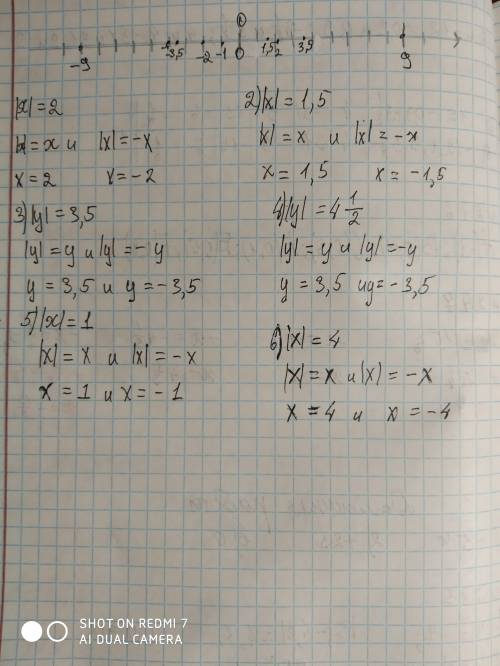 0
-9 -3,5 -2 -1 0 1,5 2 3,5 9
|x| = 2
|x| = x и |x| = -x
x = 2 x = -2
2) |x| = 1,5
|x| = x и |x| = -x
x = 1,5 x = -1,5
3) |y| = 3,5
|y| = y и |y| = -y
y = 3,5 и y = -3,5
4) |y| = 4 1/2
|y| = y и |y| = -y
y = 3,5 и y = -3,5
5) |x| = 1
|x| = x и |x| = -x
x = 1 и x = -1
6) |x| = 4
|x| = x и |x) = -x
x = 4 и x = -4
SHOT ON REDMI 7
AI DUAL CAMERA